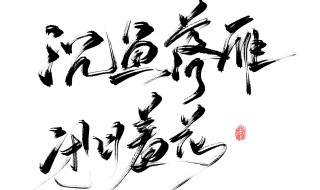 沉鱼落雁
闭月羞花